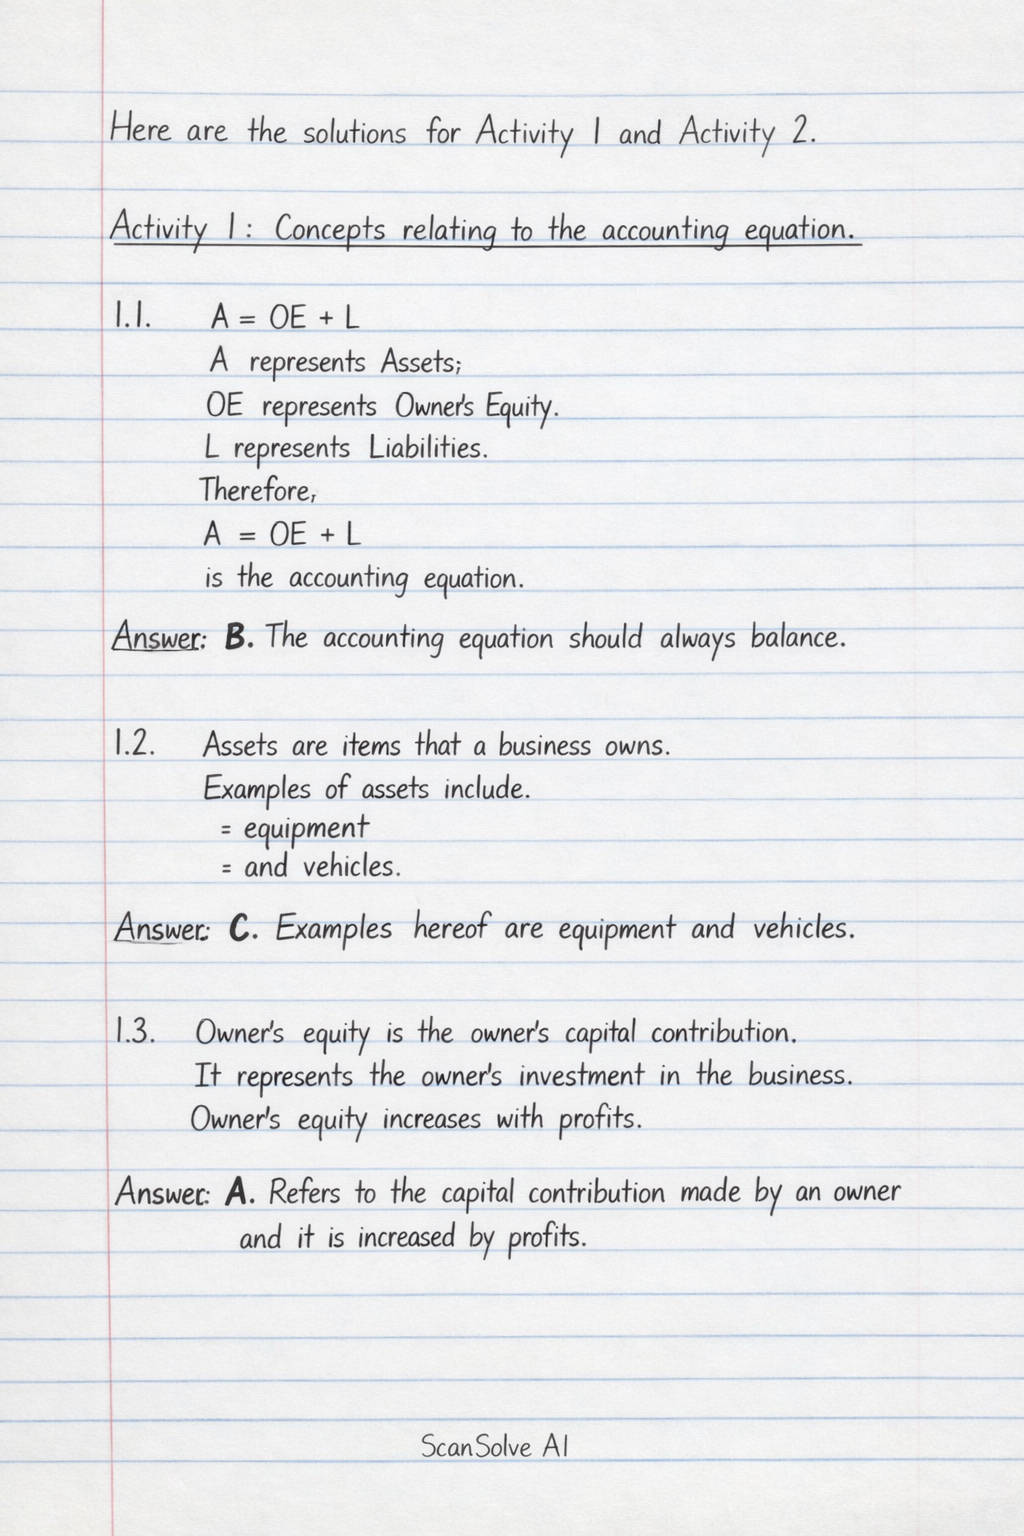 Here are the solutions for Activity 1 and Activity 2.
Activity 1: Concepts relating to the accounting equation.
1.1. A = OE + L
A represents Assets;
OE represents Owner's Equity.
L represents Liabilities.
Therefore,
A = OE + L
is the accounting equation.
Answer: B. The accounting equation should always balance.
1.2. Assets are items that a business owns.
Examples of assets include.
= equipment
= and vehicles.
Answer: C. Examples hereof are equipment and vehicles.
1.3. Owner's equity is the owner's capital contribution.
It represents the owner's investment in the business.
Owner's equity increases with profits.
Answer: A. Refers to the capital contribution made by an owner
and it is increased by profits.
ScanSolve AI